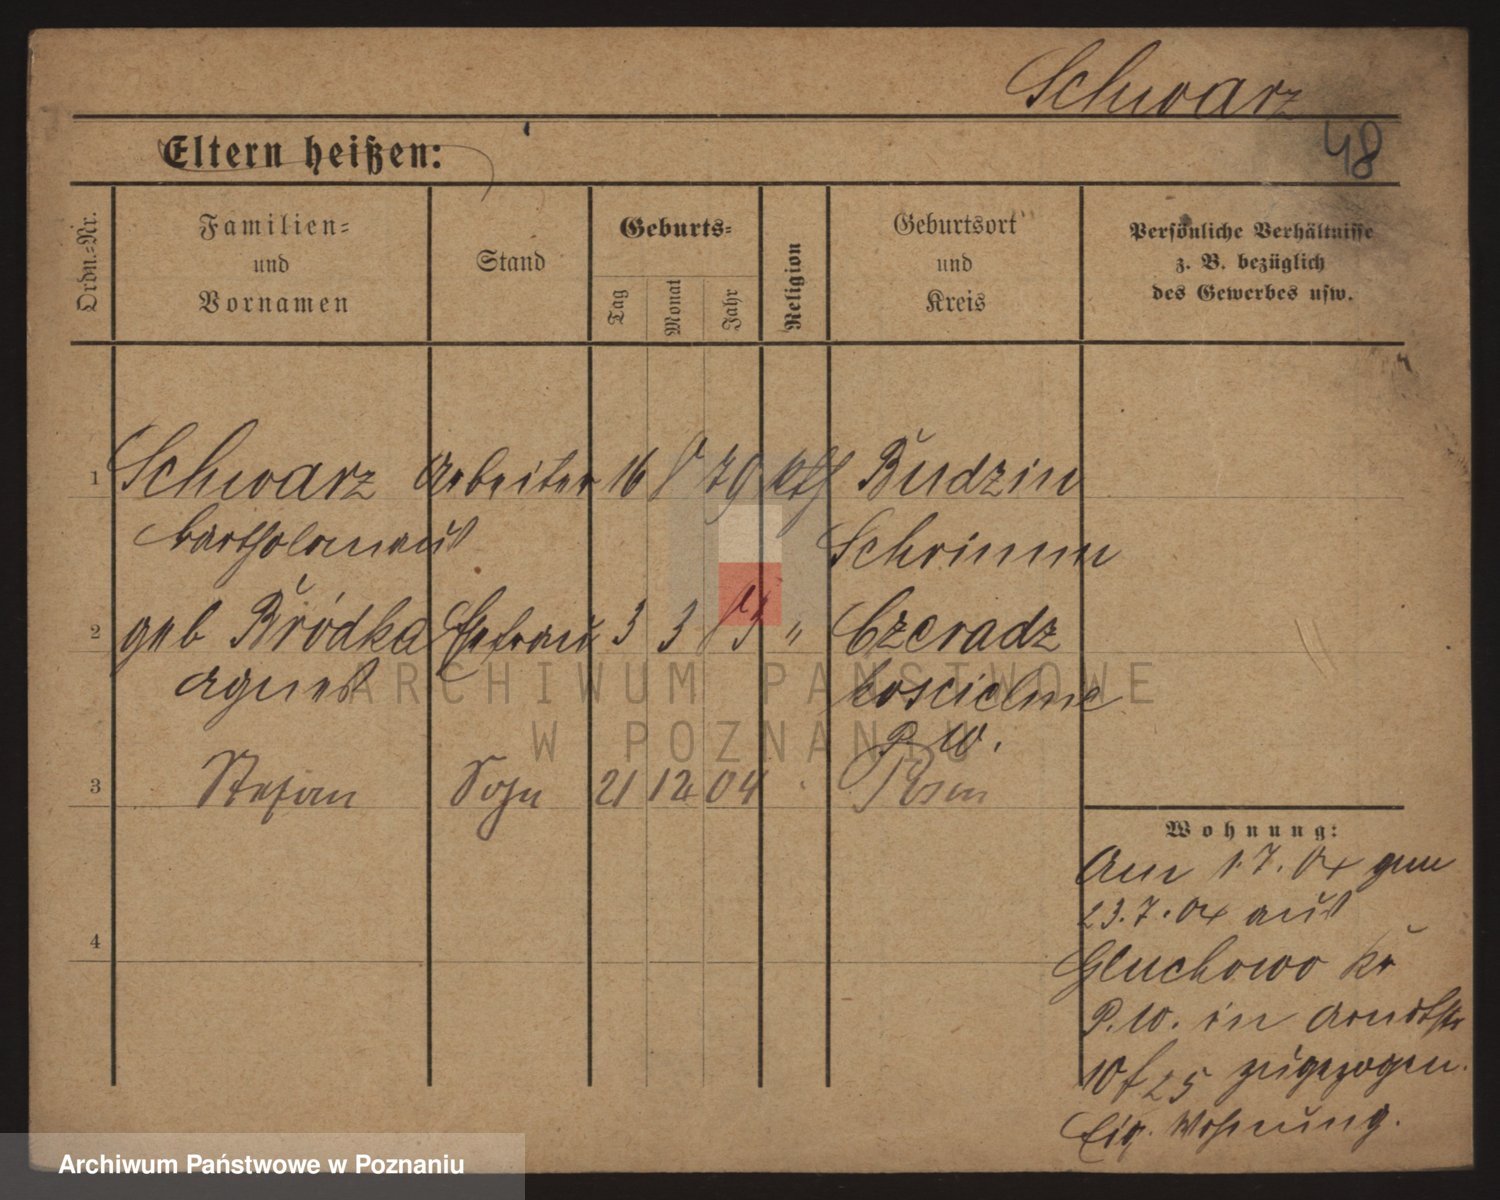 Schwarz
48
Eltern heißen:
Ordn.-Nr.
Familien- und Vornamen
Stand
Geburts-
Tag
Monat
Jahr
Religion
Geburtsort und Kreis
Persönliche Verhältnisse
z. B. bezüglich
des Gewerbes usw.
1 Schwarz Arbeiter 16 8 79 kth Budzin
Bartholomäus Schrimm
2 geb Bródka Ehefrau 3 3 83 " Czeradz
Agnes koscielne
P. W.
3 Stefan Sohn 21 12 04 Posen
4
Wohnung:
Am 1.7.04 gem
23.7.04 aus
Gluchowo Kr
P.W. in Arndtstr
10 f 25 zugezogen.
Eig. Wohnung.
ARCHIWUM PAŃSTWOWE
W POZNANIU
Archiwum Państwowe w Poznaniu